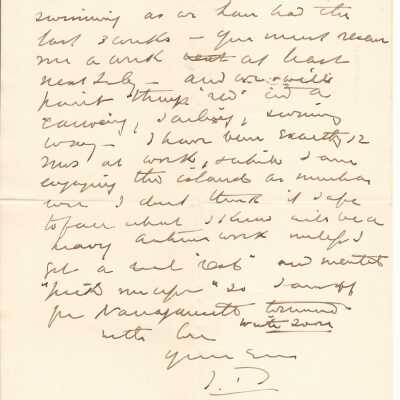 swimming as we have had the
last 3 weeks – You must reserve
me a week next at least
next July – and we will
paint things "red" in a
canoeing, sailing, swimming
way – I have been exactly 12
at work, while I am
enjoying the islands as much as
I don't think it safe
to face what I know will be a
heavy autumn work unless I
get a real "rest" and mental
"pick me up" so I am off
for Narragansett
write soon
with love
Yours
J. D